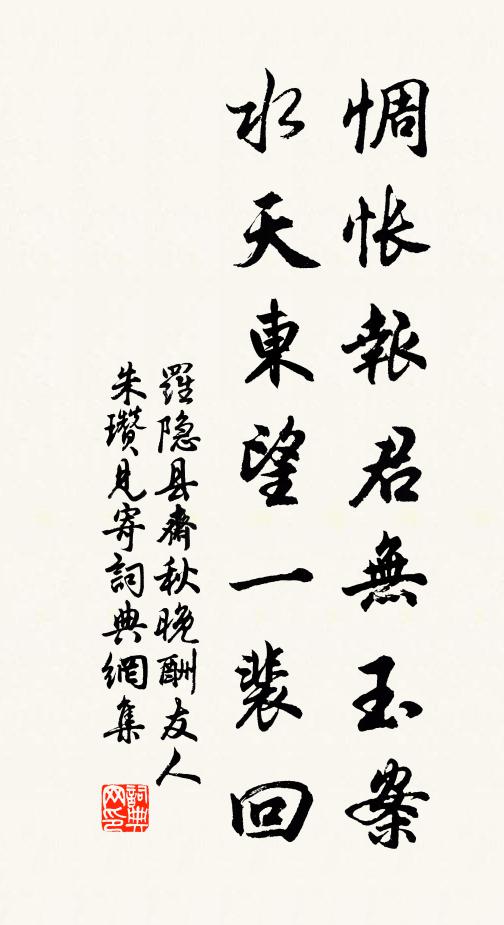 惆悵報君無玉案
水天東望一裴回
羅隐县齋秋晚酬友人
朱瓚見寄詞典網集
詞典网印